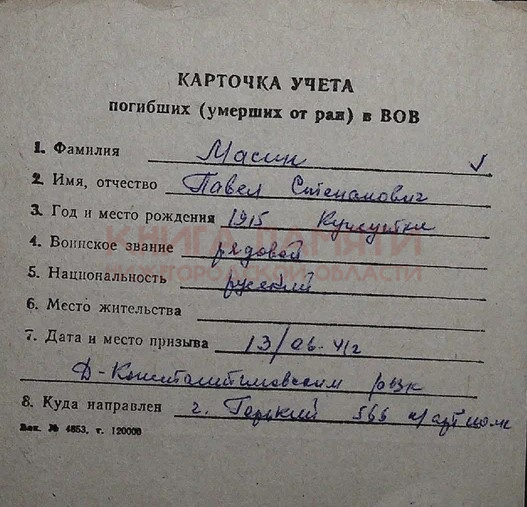 КАРТОЧКА УЧЕТА
погибших (умерших от ран) в ВОВ
1. Фамилия Масин
2. Имя, отчество Павел Степанович
3. Год и место рождения 1915
КНИГА ПАМЯТИ
4. Воинское звание рядовой
НИЖЕГОРОДСКОЙ ОБЛАСТИ
5. Национальность русский
6. Место жительства
7. Дата и место призыва 13/
Д-Константиновским рвк
8. Куда направлен г. Горький 566
Зак. № 4853, т. 120000